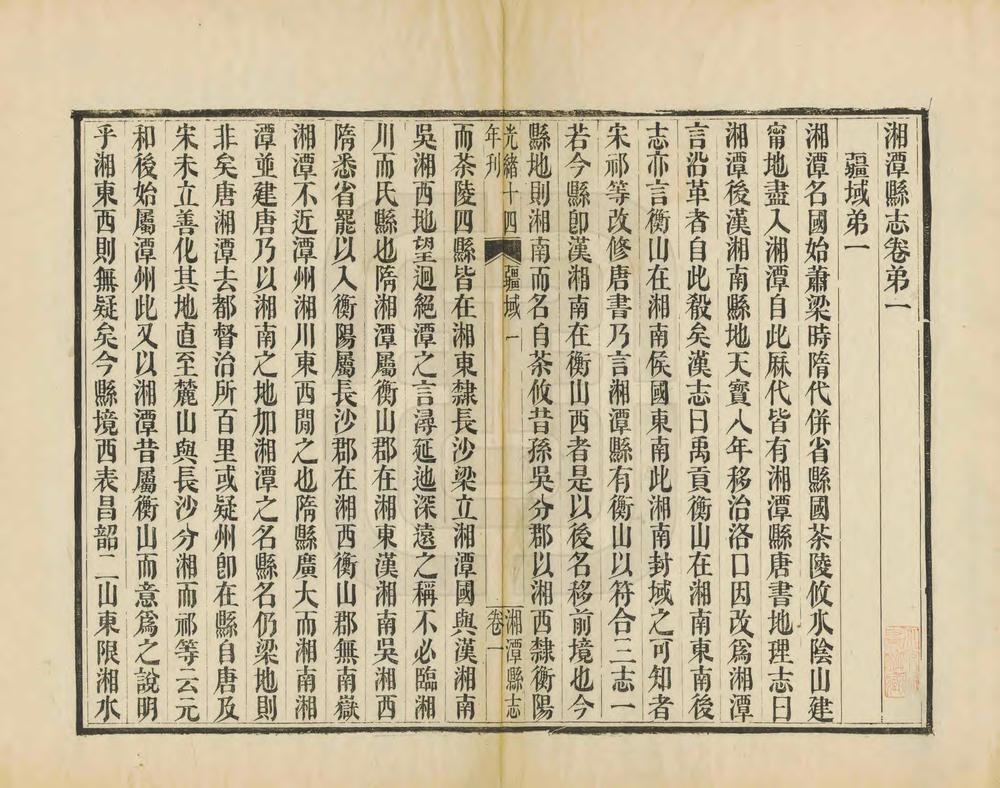 湘潭縣志卷弟一
疆域弟一
湘潭名國始蕭梁時隋代併省縣國茶陵攸水陰山建
甯地盡入湘潭自此厤代皆有湘潭縣唐書地理志曰
湘潭後漢湘南縣地天寳八年移治洛口因改爲湘潭
言沿革者自此殽矣漢志曰禹貢衡山在湘南東南後
志亦言衡山在湘南侯國東南此湘南封域之可知者
宋祁等改修唐書乃言湘潭縣有衡山以符合三志一
若今縣卽漢湘南在衡山西者是以後名移前境也今
縣地則湘南而名自茶攸昔孫吳分郡以湘西隸衡陽
光緒十四
年刊
疆域
一
湘潭縣志
卷一
而茶陵四縣皆在湘東隸長沙梁立湘潭國與漢湘南
吳湘西地望迥絕潭之言潯延迆深遠之稱不必臨湘
川而氏縣也隋湘潭屬衡山郡在湘東漢湘南吳湘西
隋悉省罷以入衡陽屬長沙郡在湘西衡山郡無南嶽
湘潭不近潭州湘川東西閒之也隋縣廣大而湘南湘
潭並建唐乃以湘南之地加湘潭之名縣名仍梁地則
非矣唐湘潭去都督治所百里或疑州卽在縣自唐及
宋未立善化其地直至麓山與長沙分湘而祁等云元
和後始屬潭州此又以湘潭昔屬衡山而意爲之說明
乎湘東西則無疑矣今縣境西表昌韶二山東限湘水